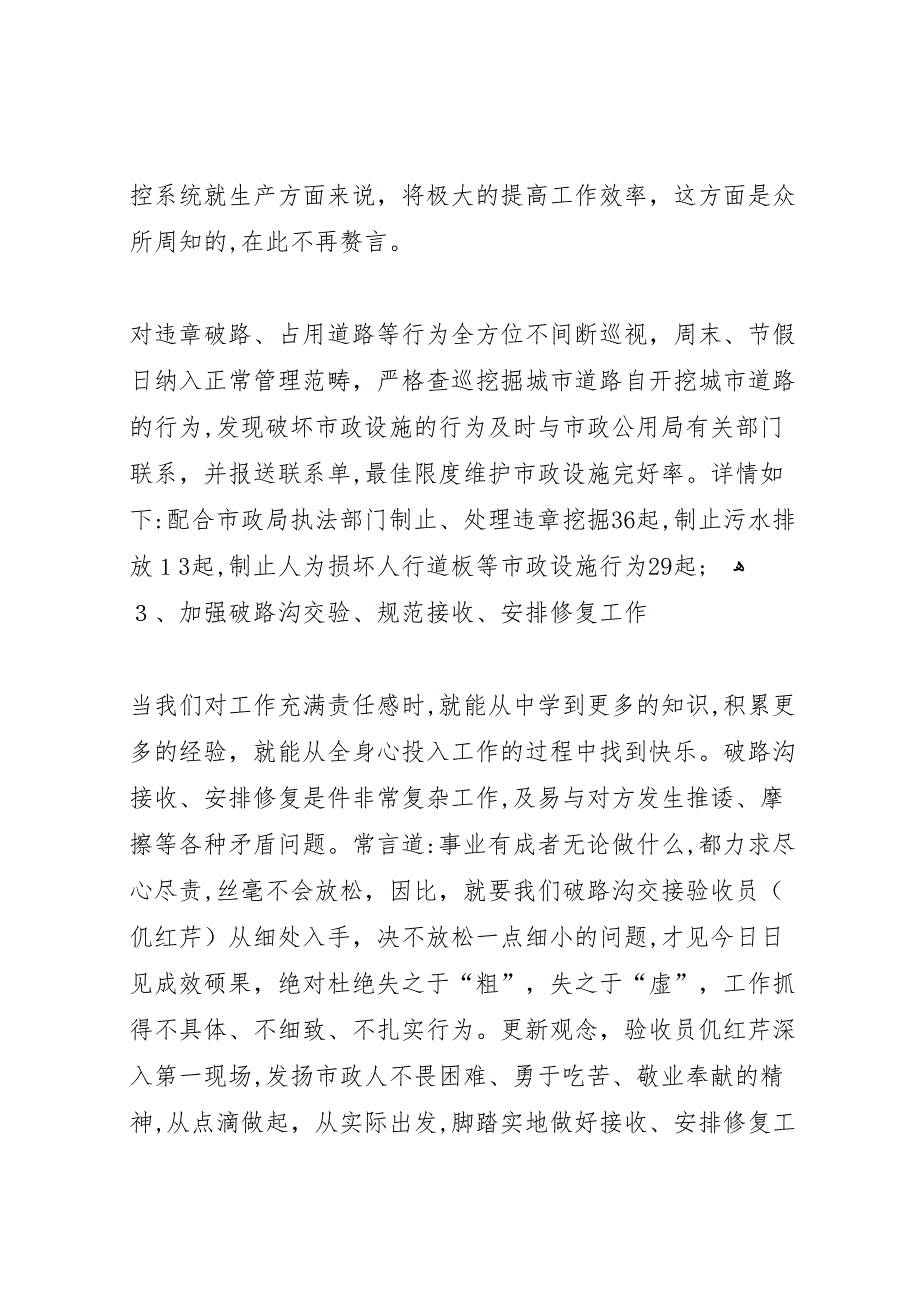 控系统就生产方面来说，将极大的提高工作效率，这方面是众
所周知的,在此不再赘言。
对违章破路、占用道路等行为全方位不间断巡视，周末、节假
日纳入正常管理范畴，严格查巡挖掘城市道路自开挖城市道路
的行为,发现破坏市政设施的行为及时与市政公用局有关部门
联系，并报送联系单,最佳限度维护市政设施完好率。详情如
下:配合市政局执法部门制止、处理违章挖掘36起,制止污水排
放１3起,制止人为损坏人行道板等市政设施行为29起; ﻫ
３、加强破路沟交验、规范接收、安排修复工作
当我们对工作充满责任感时,就能从中学到更多的知识,积累更
多的经验，就能从全身心投入工作的过程中找到快乐。破路沟
接收、安排修复是件非常复杂工作,及易与对方发生推诿、摩
擦等各种矛盾问题。常言道:事业有成者无论做什么,都力求尽
心尽责,丝毫不会放松，因比，就要我们破路沟交接验收员（
仉红芹）从细处入手，决不放松一点细小的问题,才见今日日
见成效硕果，绝对杜绝失之于“粗”，失之于“虚”，工作抓
得不具体、不细致、不扎实行为。更新观念，验收员仉红芹深
入第一现场,发扬市政人不畏困难、勇于吃苦、敬业奉献的精
神,从点滴做起，从实际出发,脚踏实地做好接收、安排修复工